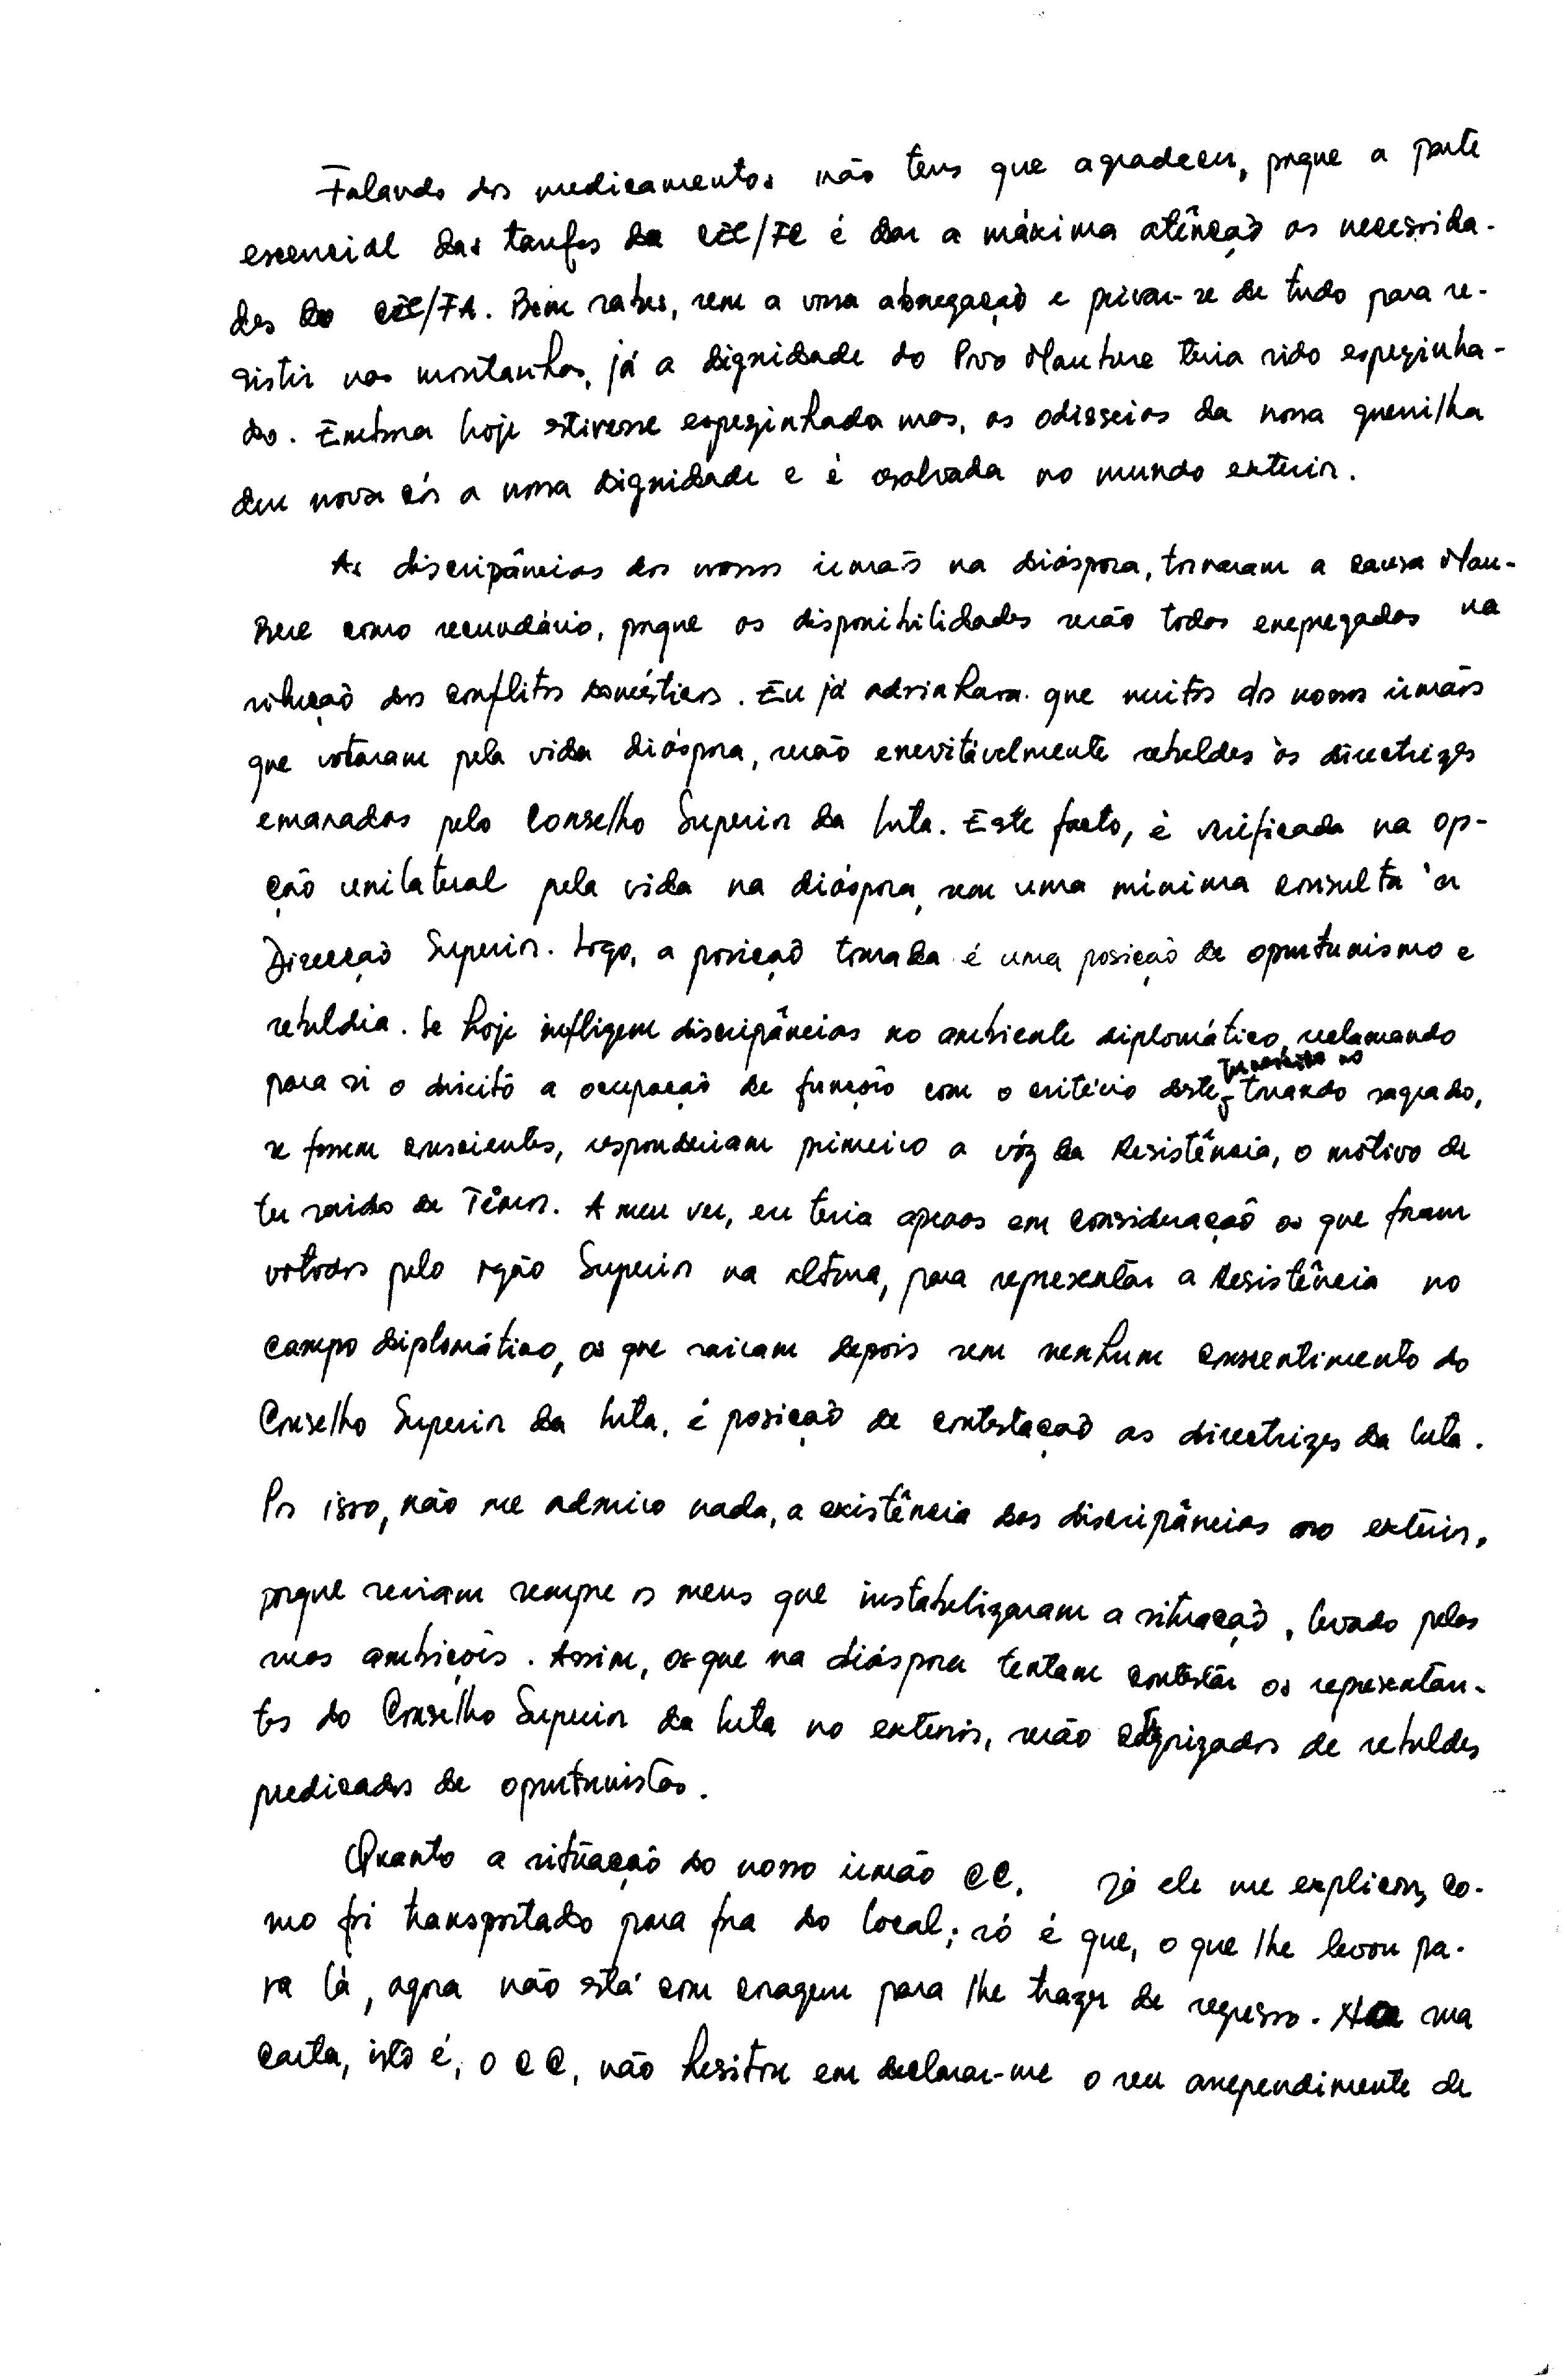 Falando dos medicamentos não tens que agradecer, porque a parte
escencial das tarefas da CEL/FC é dar a máxima atênção as necessida-
des do CEL/FA. Bem sabes, sem a vossa abnegação e privar-se de tudo para re-
sistir nas montanhas, já a dignidade do Povo Maubere teria sido espezinha-
do. Embora hoje estivesse espezinhada mas, as odisseias da nossa guerrilha
deu nova côr a nossa dignidade e é asolvada no mundo exterior.
As discripâncias dos nossos irmaõs na diáspora, tornaram a causa Mau-
bere como secundário, porque as disponibilidades serão todas empregadas na
solução dos conflitos domésticos. Eu já adivinhara que muitos dos nossos irmãos
que votaram pela vida diáspora, serão enevitávelmente rebeldes às directrizes
emanadas pelo Conselho Superior da Luta. Este facto, é verificada na op-
ção unilateral pela vida na diáspora, sem uma mínima consulta à
Direcção Superior. Logo, a posição tomada é uma posição de oportunismo e
rebeldia. Se hoje infligem discripâncias no ambiente diplomático, reclamando
para si o direito a ocupação de função com o critério deste, tornando sagrado,
se fossem conscientes, responderiam primeiro a vóz da Resistência, o motivo de
ter saido de Timor. A meu ver, eu teria apenas em consideração os que foram
votados pelo rgão Superior na altura, para representar a Resistência no
campo diplomático, os que sairam depois sem nenhum consentimento do
Conselho Superior da Luta, é posição de contestação as directrizes da Luta.
Por isso, não me admiro nada, a existência das discripâncias no exterior,
porque seriam sempre os meus que instabilizaram a situação, levado pelas
suas ambiçoẽs. Assim, os que na diáspora tentam contestar os representan-
tes do Conselho Superior da Luta no exterior, serão catgorizados de rebeldes
predicados de oportunistas.
Quanto a situação do nosso irmão CC, já ele me explicou, co-
mo foi transportado para fora do local; só é que, o que lhe levou pa-
ra lá, agora não está com coragem para lhe trazer de regresso. Na sua
carta, isto é, o CC, não hesitou em declarar-me o seu arrependimente de